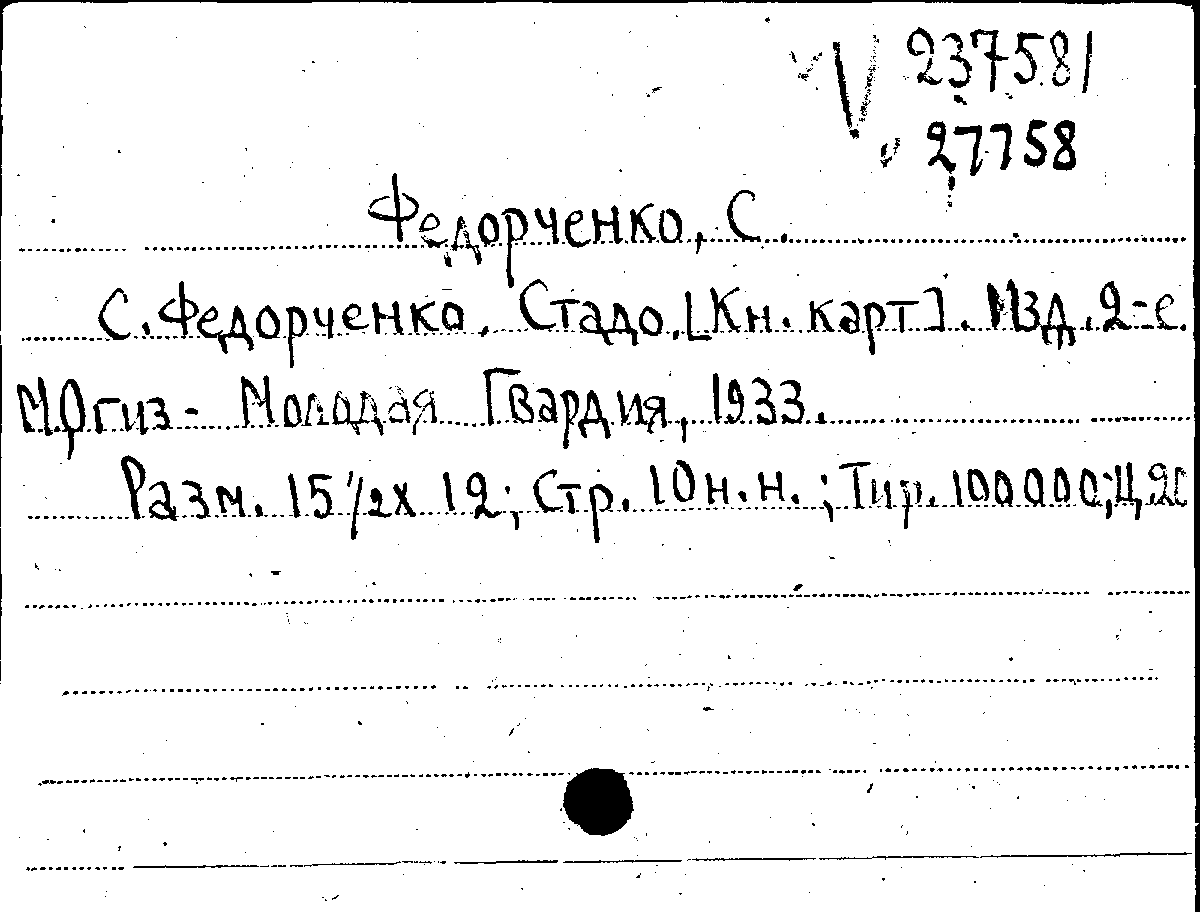 237581
27758
Федорченко, С.
С. Федорченко. Стадо. [Кн. карт]. Изд. 2-е.
М, Огиз - Молодая Гвардия, 1933.
Разм. 15 1/2 х 12; Стр. 10 н.н.; Тир. 100000; Ц. 20